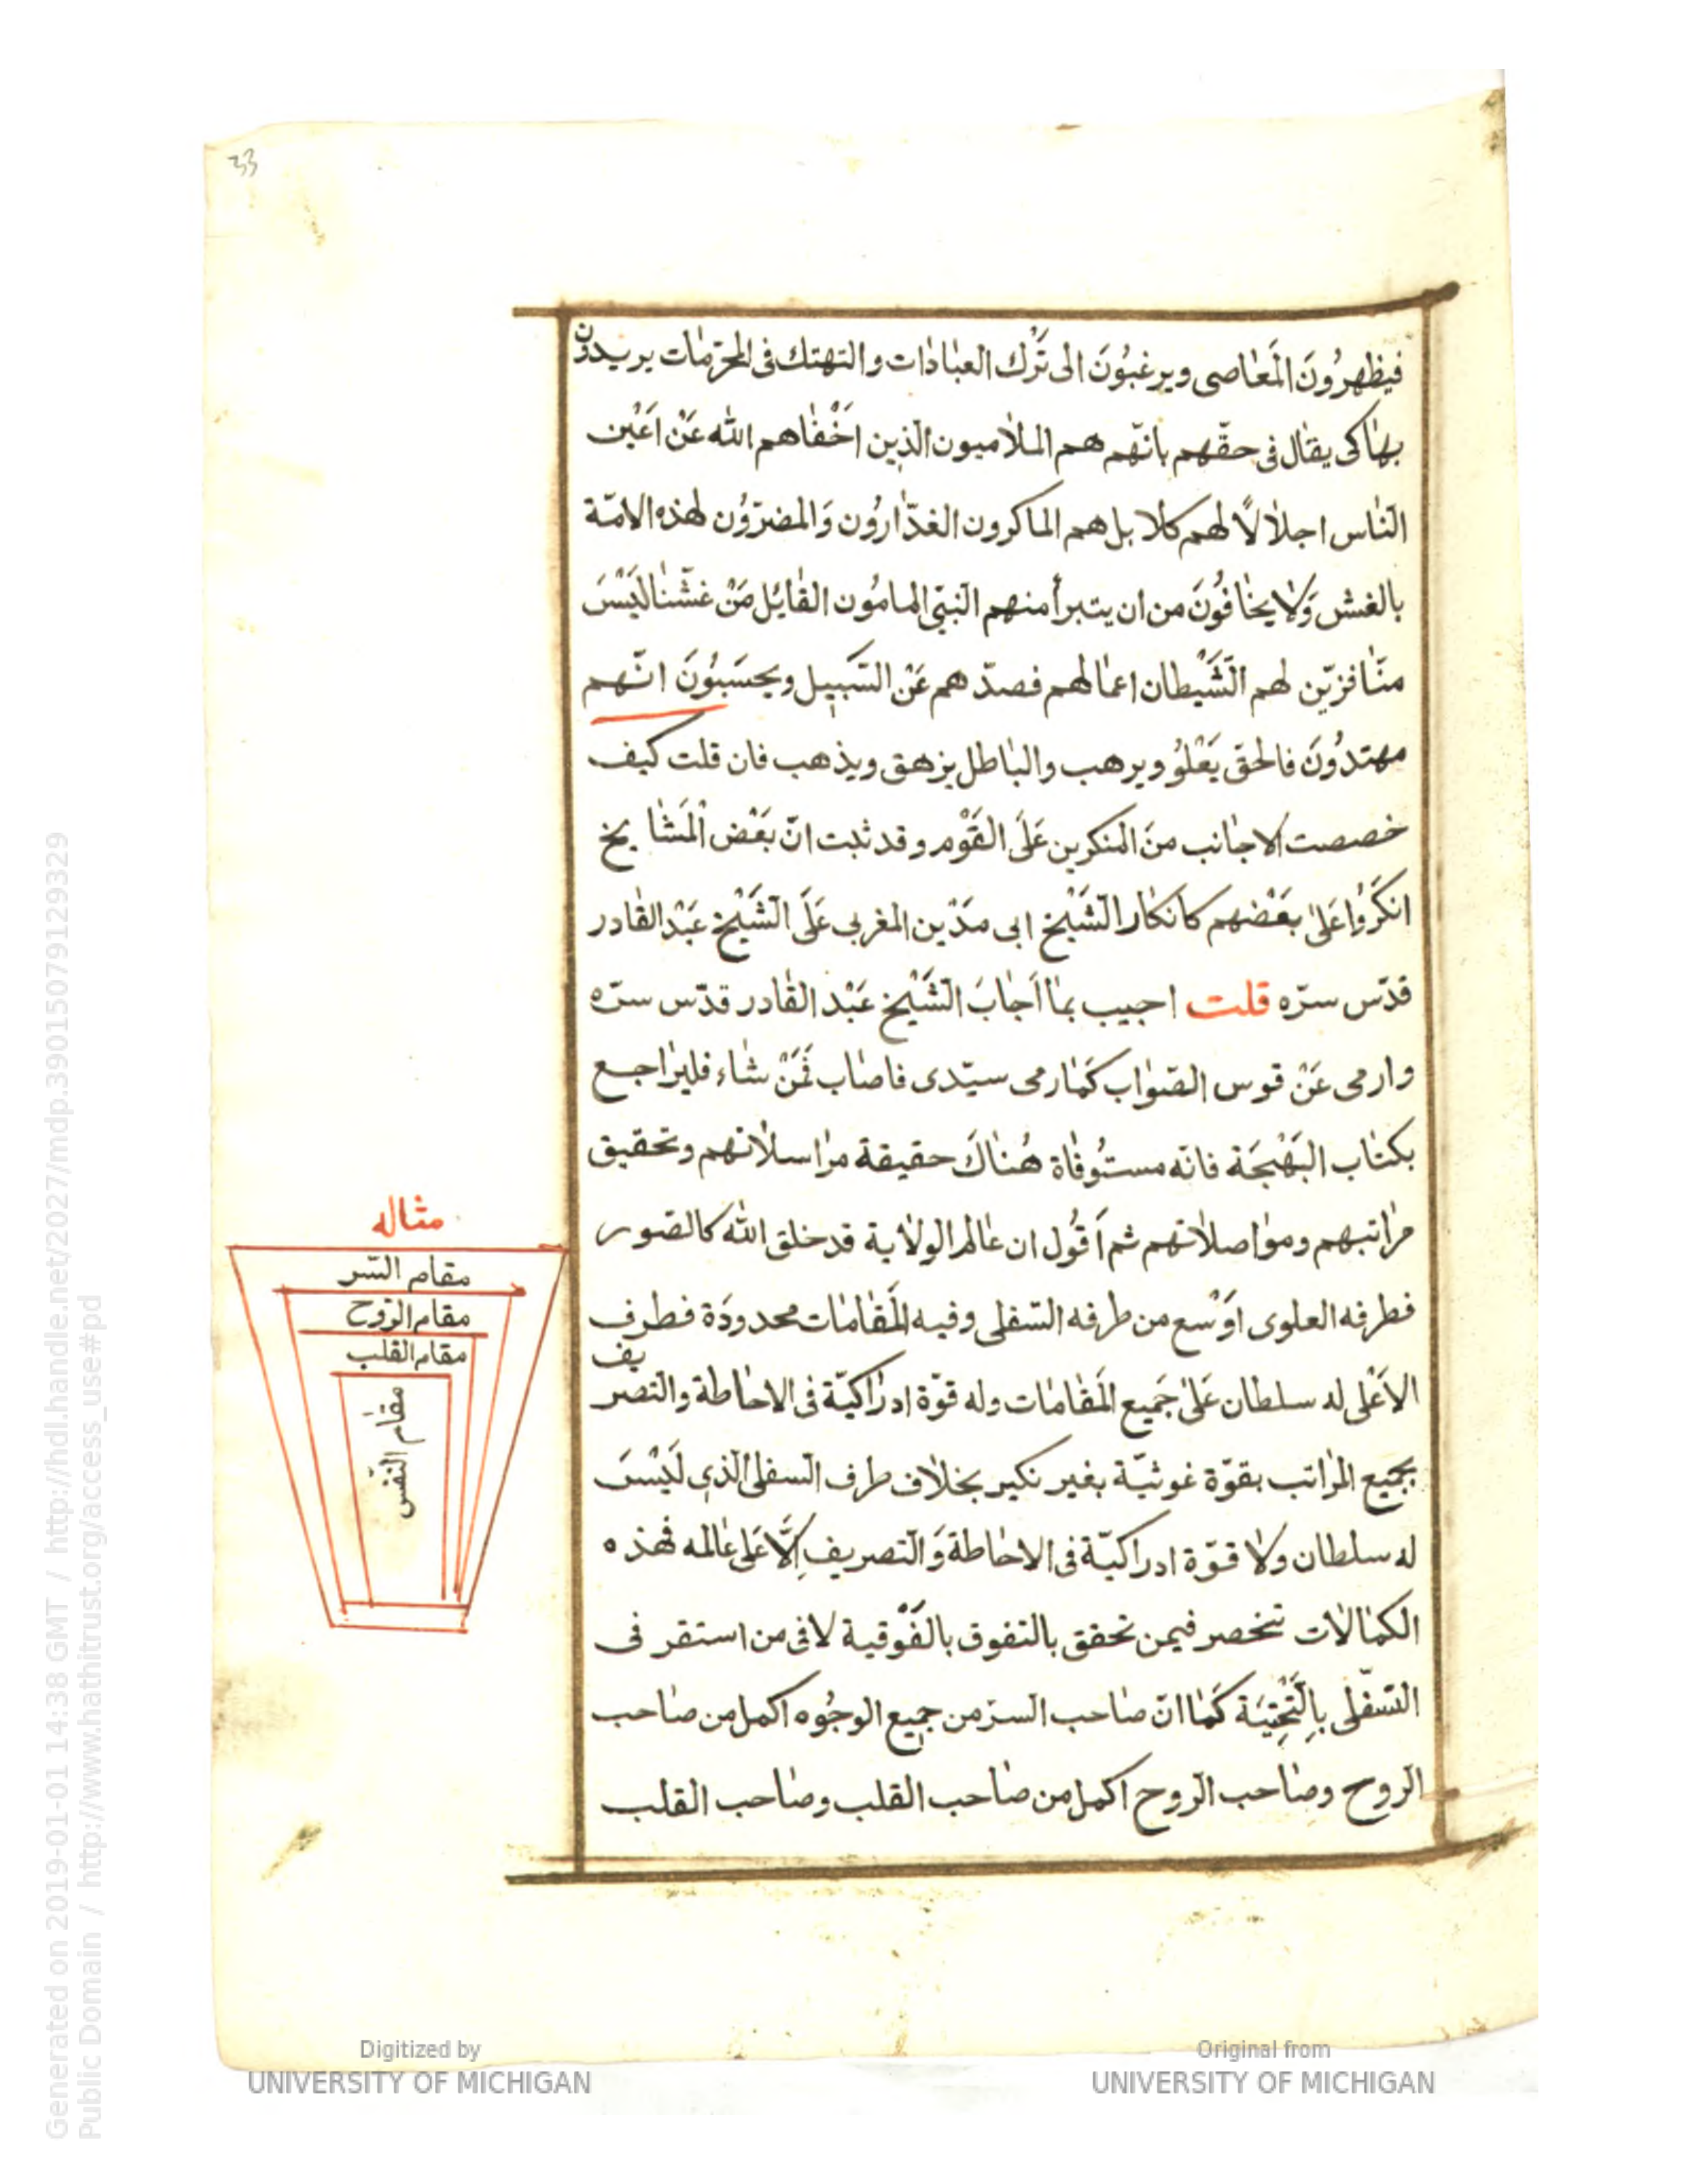 33
فيظهرُونَ المَعَاصى ويرغبُونَ الى تَرْك العبَادَات والتهتك فى المحرّمَات يريدون
بهَا كى يقال فى حقّهم بانّهم هم الملاميون الّذين اَخْفَاهم الله عَنْ اَعْيُن
النّاس اجلَالاً لهم كلا بل هم الماكرون الغدّارُون وَالمضرّوُن لهذه الامّة
بالغش وَلا يخَافُونَ من ان يتبرأ منهم النّبىّ المامُون القائل مَنْ غَشّنا لَيْسَ
منّا فزيّن لهم الشَّيْطان اعمَالهم فصدّهم عَنْ السَّبيل ويحسَبُونَ انّهم
مهتدُونَ فالحقّ يَعْلوُ ويرهب والبَاطل يزهق ويذهب فان قلت كيف
خصصت الاجَانب منَ المنكرين عَلَى القَوْم وقد ثبت انّ بَعْض المَشَايخ
انكَرُوا عَلىٰ بعَضهم كانكار الشَّيْخ ابى مَدْين المغربى عَلَى الشَّيْخ عَبْد القَادر
قدّس سرّه قلت اجيب بمَا اَجَابَ الشَّيْخ عَبْد القَادر قدّس سرّه
وارمى عَنْ قوس الصّوَاب كَمَا رمى سيّدى فاصَاب فَمَنْ شَاء فليرَاجع
بكتَاب البَهْجَة فانّه مستوُفَاة هُنَاكَ حقيقة مرَاسلَاتهم وتحقيق
مرَاتبهم وموَاصلَاتهم ثم اَقُول ان عَالم الولَاية قد خلق الله كالصّور
فطرفه العلوى اوَْسع من طرفه السّفلى وفيه المقَامَات محدودَة فطرف
الاَعْلى له سلطان عَلىٰ جَميع المَقَامَات وله قوّة ادرَاكيّة فى الاحَاطة والتصريف
بجميع المرَاتب بقوّة غوثيّة بغير نكير بخلَاف طرف السفلى الّذى لَيْسَ
له سلطان ولَا قوّة ادراكيّة فى الاحَاطة وَالتصريف اِلَّا عَلى عَالمه فهذه
الكمَالَات تنحصر فيمن تحقق بالتفوق بالفَوْقية لا فى من استقر فى
السّفْلى بالتَّحْتِيَة كَمَا انّ صَاحب السرّ من جميع الوجُوه اكمل من صَاحب
الرّوح وصَاحب الرّوح اكمل من صَاحب القلب وصَاحب القلب
مثاله
مقام السّر
مقام الرّوح
مقام القلب
مقام النّفس
Generated on 2019-01-01 14:38 GMT / http://hdl.handle.net/2027/mdp.39015079129329
Public Domain / http://www.hathitrust.org/access_use#pd
Digitized by
UNIVERSITY OF MICHIGAN
Original from
UNIVERSITY OF MICHIGAN